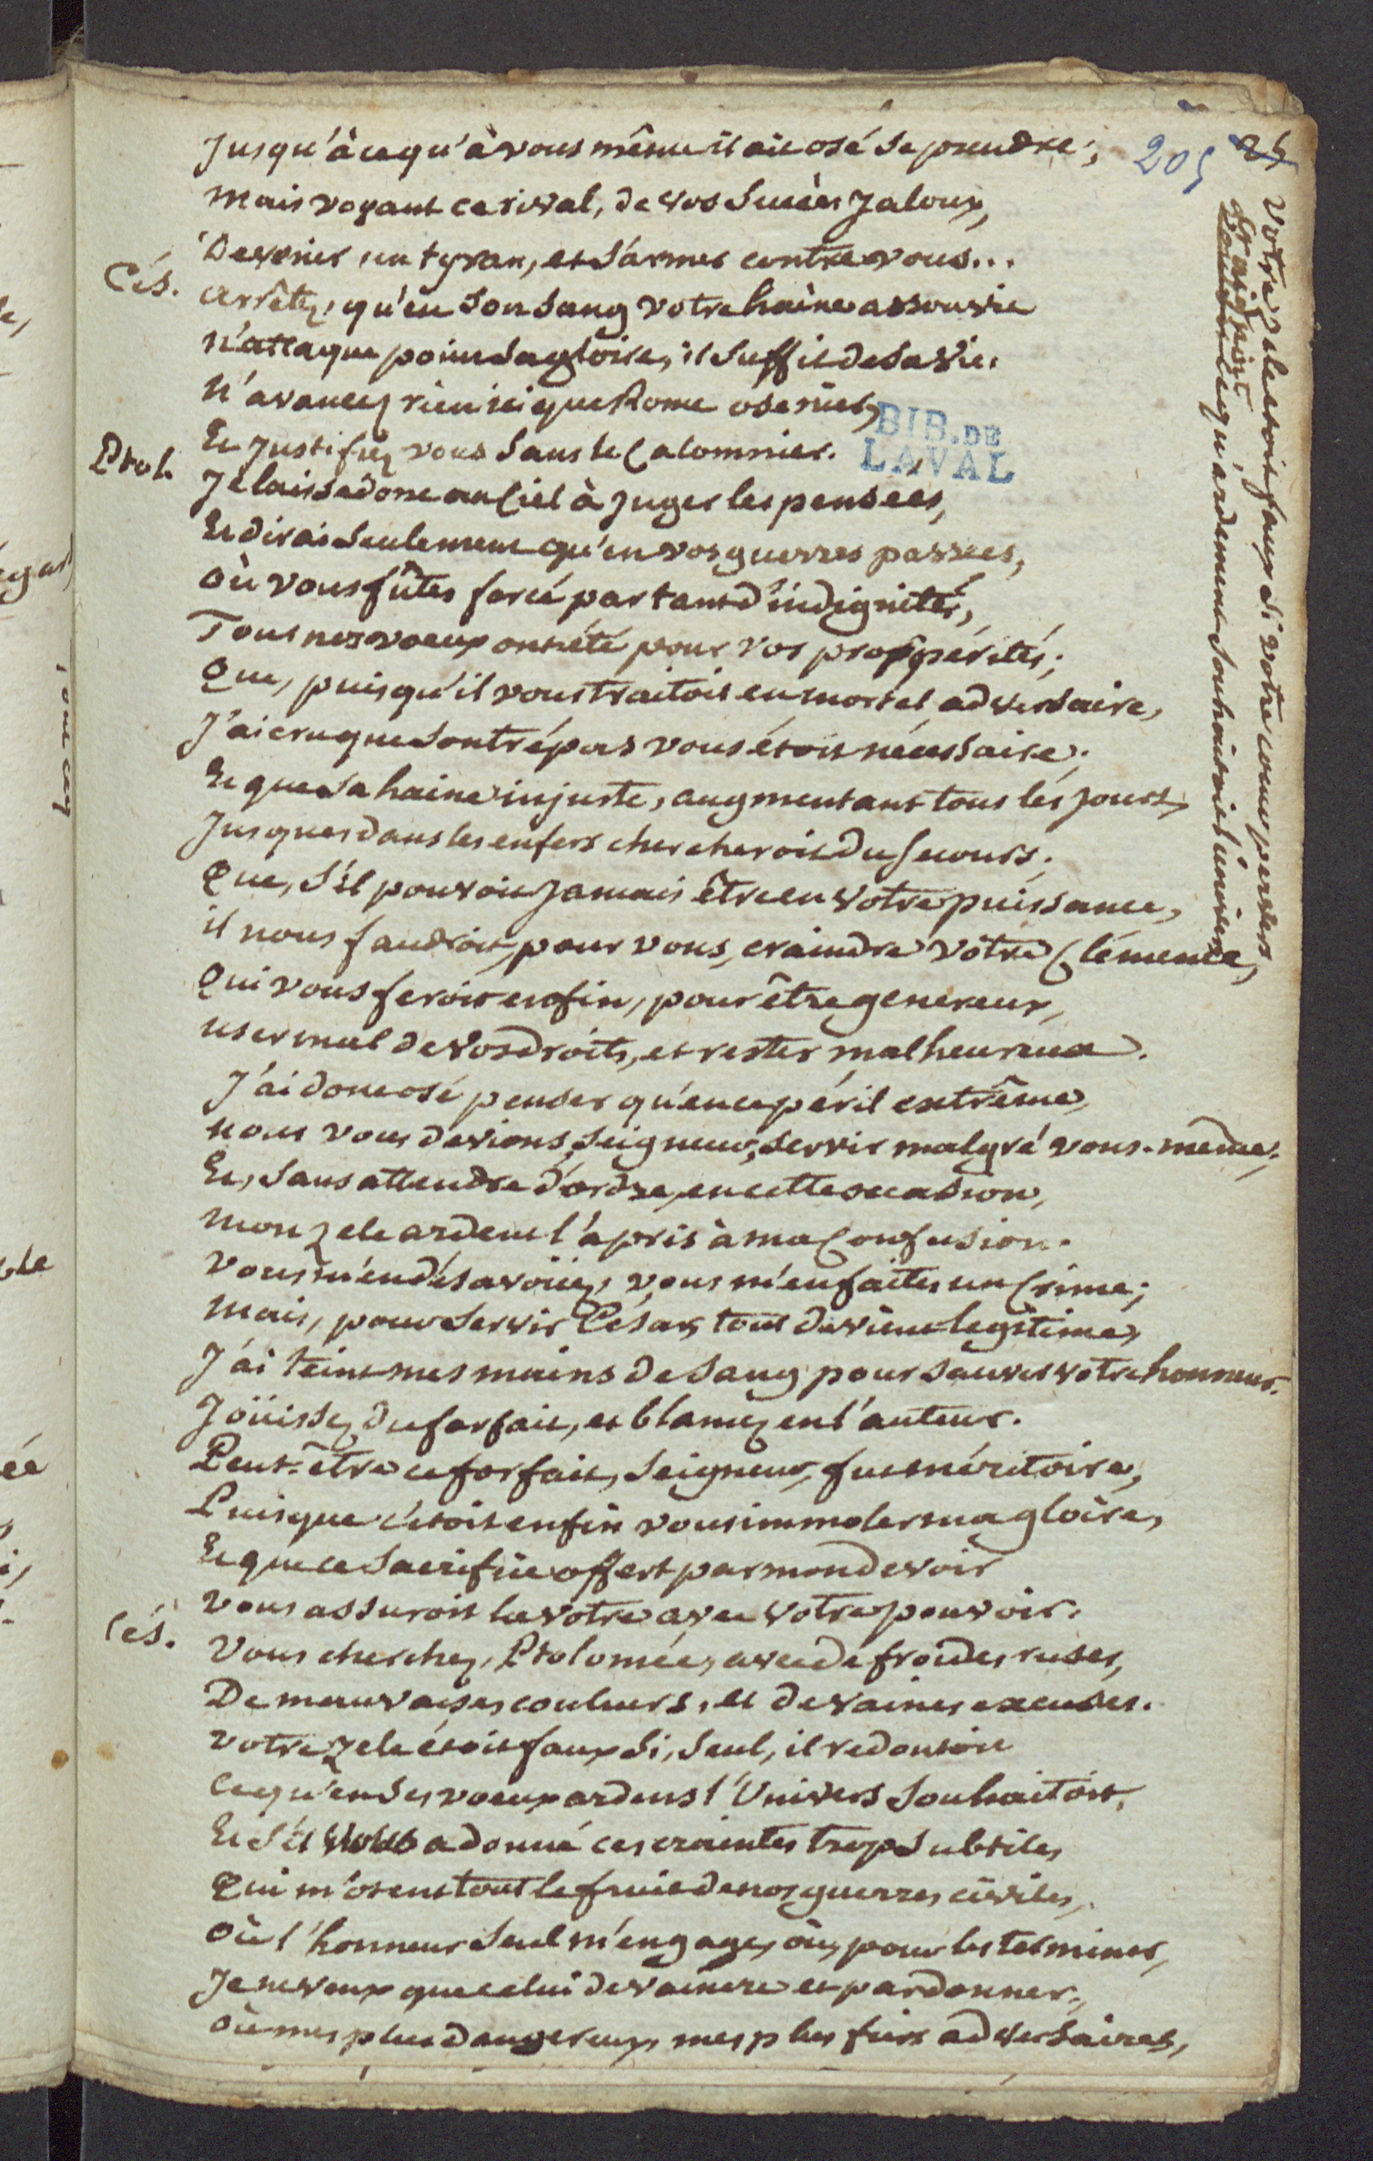 205
25
Jusqu'à ce qu'à vous même il ait osé se prendre;
Mais voyant ce rival, de vos succès Jaloux,
Devenir un tyran, et s'armer contre vous...
Cés.
Arrêtez, qu'en son sang votre haine assouvie
N'attaque point sa gloire, il suffit de sa vie.
N'avancez rien ici que Rome ose nier,
Et Justifiez vous sans le Calomnier.
Ptol.
Je laisse donc au Ciel à Juger les pensées,
Et dirai seulement qu'en vos guerres passées,
Où vous fûtes forcé par tant d'indignités,
Tous nos voeux ont été pour vos prospérités;
Que, puisqu'il vous traitoit en mortel adversaire,
J'ai cru que son trépas vous étoit nécessaire;
Et que sa haine injuste, augmentant tous les jours,
Jusques dans les enfers chercheroit du secours;
Que, s'il pouvoit Jamais être en votre puissance,
il nous faudroit, pour vous, craindre votre Clémence,
Qui vous feroit enfin, pour être genereux,
user mal de vos droits, et rester malheureux.
J'ai donc osé penser qu'en ce péril extrême,
nous vous devions, Seigneur, servir malgré vous-même;
Et, sans attendre d'ordre, en cette occasion,
Mon zele ardent l'a pris à ma Confusion.
Vous m'en désavoüez, vous m'en faites un Crime;
Mais, pour servir César, tout devient legitime,
J'ai teint mes mains de sang pour sauver votre honneur.
Joüissez du forfait, et blamez en l'auteur.
Peut-être ce forfait, Seigneur, fut méritoire,
Puisque c'étoit enfin vous immoler ma gloire,
Et que ce sacrifice offert par mon devoir
Vous assuroit la votre avec votre pouvoir.
Cés.
Vous cherchez, Ptolomée, avec de froides ruses,
De mauvaises couleurs, et de vaines excuses.
Votre zele étoit faux si, seul, il redoutoit
Ce qu'en ses voeux ardens l'Univers souhaitoit,
Et s'il vous a donné ces craintes trop subtiles
Qui m'ôtent tout le fruit de nos guerres civiles,
Où l'honneur seul m'engage, où, pour les terminer,
Je ne veux que celui de vaincre et pardonner,
Où mes plus dangereux, mes plus fiers adversaires,
Votre zele étoit faux si votre coeur pervers
craignoit
ce qu'ardemment souhaitoit l'univers
BIB. DE
LAVAL